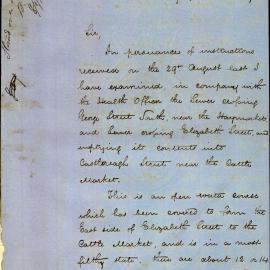 Sir,
In pursuance of instructions
received on the 29th August last I
have examined, in company with
the Health Officer the Sewer crossing
George Street South, near the Haymarket,
and Sewer crossing Elizabeth Street, and
emptying its contents into
Castlereagh Street near the Cattle
Market.
This is an open water course
which has been covered to form the
East side of Elizabeth Street to the
Cattle Market, and is in a most
filthy state. there are about 12 or 14